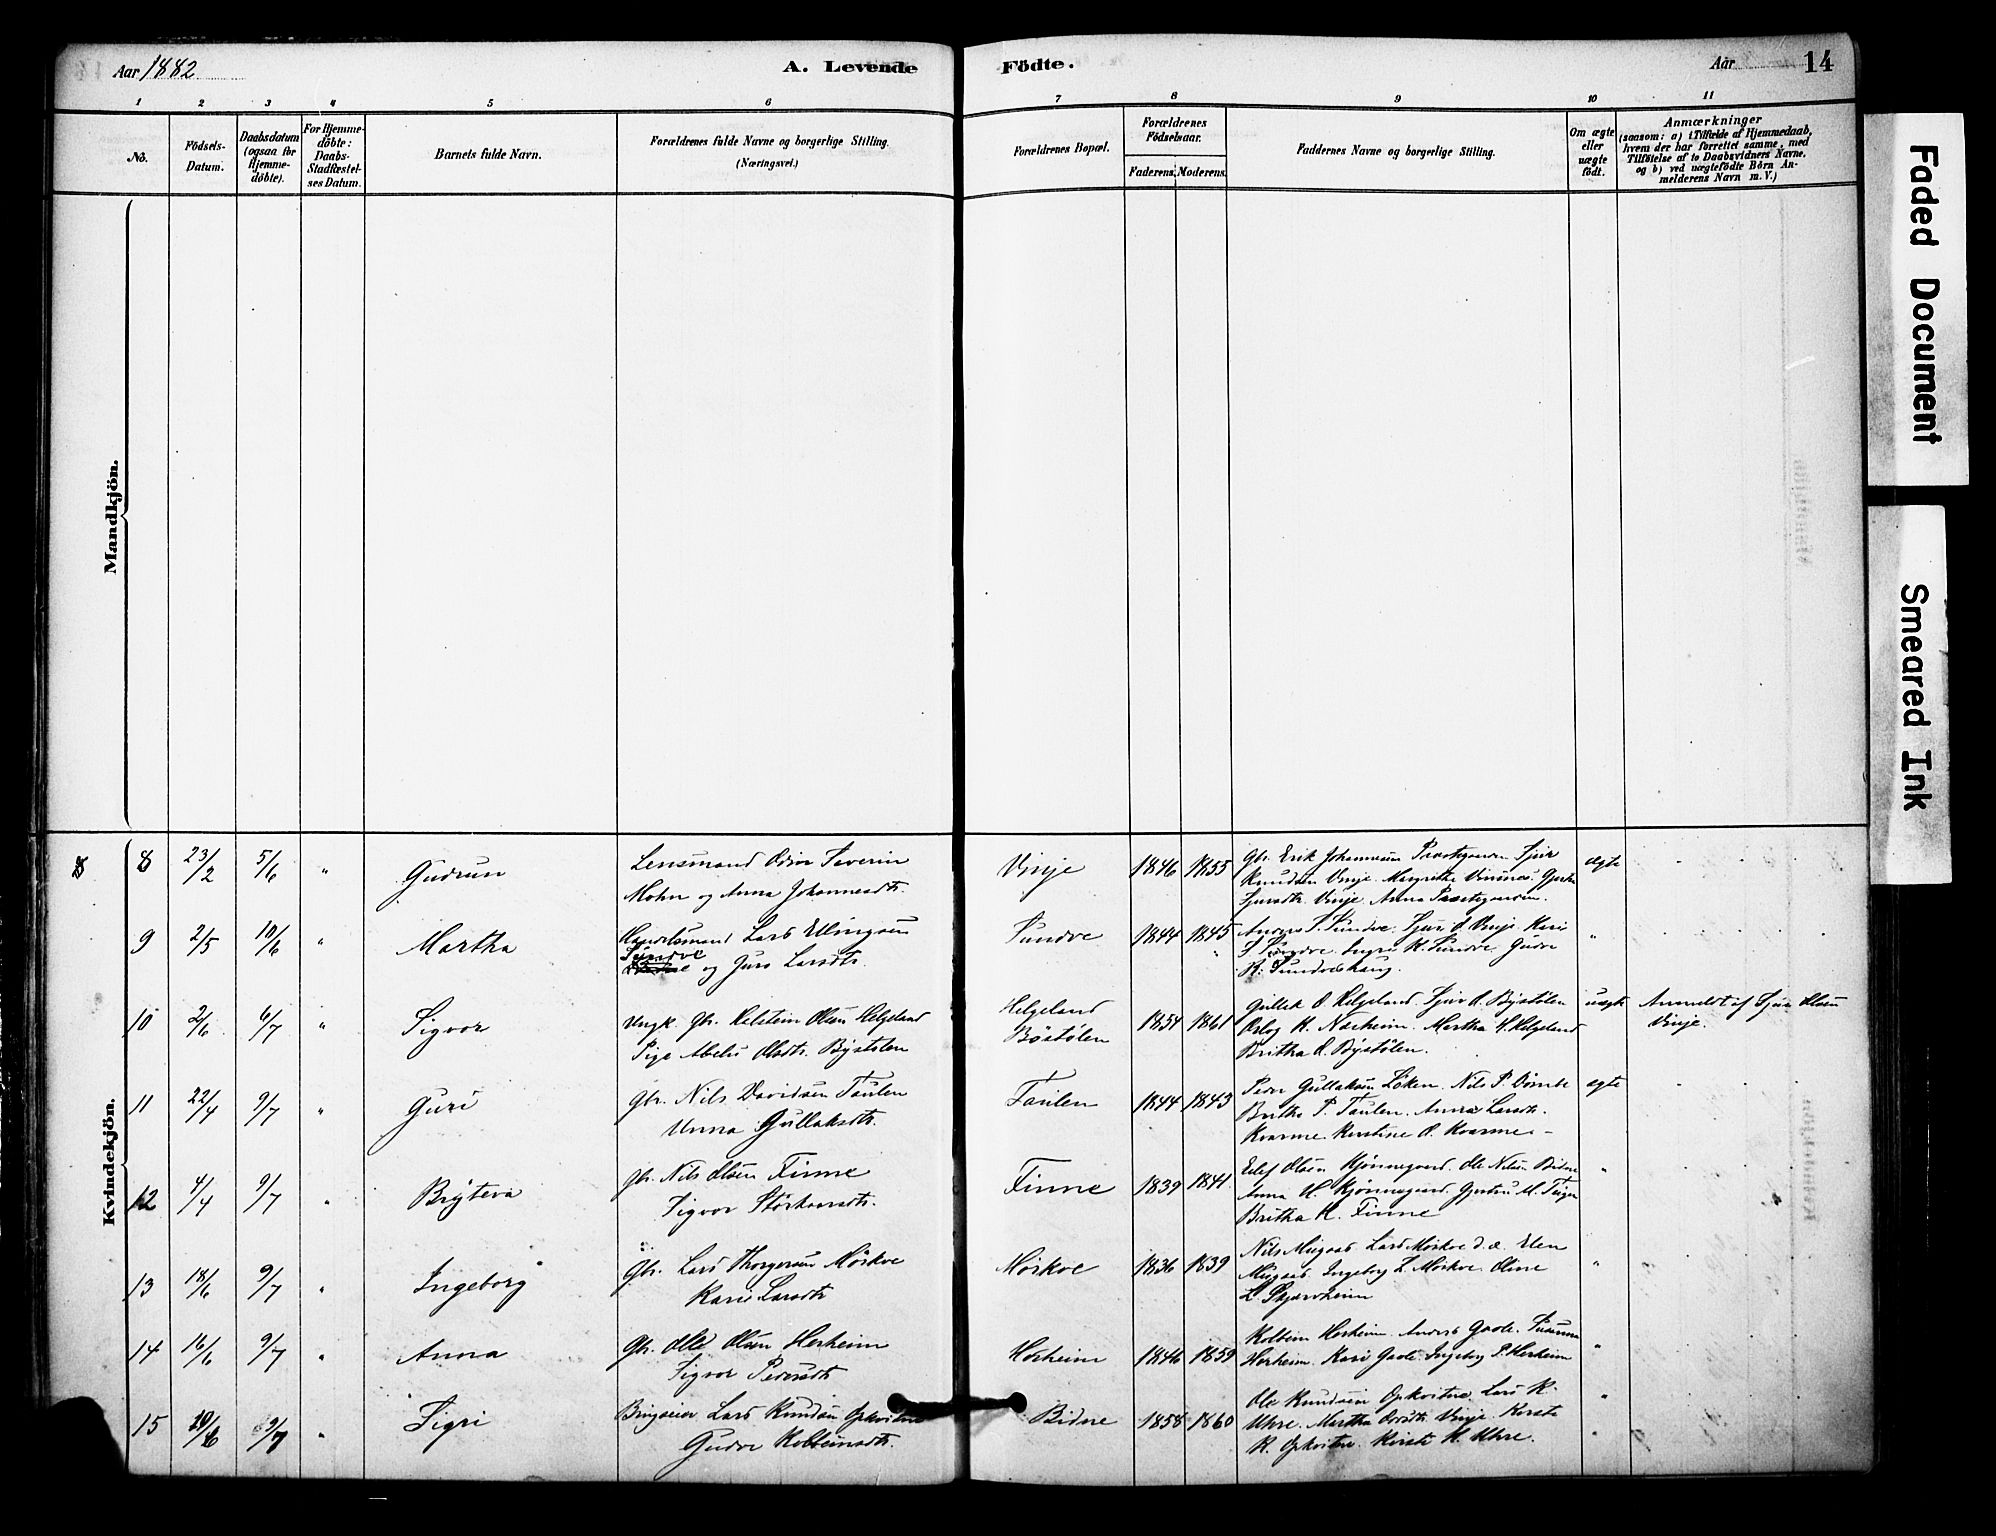 Aar 1882
A. Levende
Födte.
Aar
14
1 2 3 4 5 6 7 8 9 10 11
No.
Födsels-
Datum.
Daabsdatum
(ogsaa for
Hjemme-
döbte).
For Hjemme-
döbte:
Daabs-
Stadfæstel-
ses Datum.
Barnets fulde Navn.
Forældrenes fulde Navne og borgerlige Stilling.
(Næringsvei.)
Forældrenes Bopæl.
Forældrenes
Födselsaar.
Faderens. Moderens.
Faddernes Navne og borgerlige Stilling.
Om ægte
eller
uægte
födt.
Anmærkninger
(saasom: a) i Tilfælde af Hjemmedaab,
hvem der har forrettet samme, med
Tilföielse af to Daabsvidners Navne,
og b) ved uægtefödte Börn An-
melderens Navn m. V.)
Mandkjön.
Kvindekjön.
8 8 23/2 5/6 " Gudrun
Lensmand Odin Severin
Mohn og Anna Johannesdtr.
Vinje 1846 1855
Gbr. Erik Johannesen Præstegaarden Sjur
Knudsen Vinje. Margrethe Vinsnes.
Sjursdtr. Vinje. Anna Præstegaarden.
ægte
9 2/5 10/6 " Martha
Handelsmand Lars Ellingsen
Sundve
og Guro Larsdtr.
Sundve 1844 1845
Anders S. Sundve. Sjur O. Vinje Kari
S. Sundve. Ingri K. Sundve. Gudve
B. Sundvehaug.
"
10 2/6 6/7 " Sigvor
Ungk. Gbr. Kelstein Olsen Helgeland
Pige Abelu Olsdtr. Bystølen
Helgeland
Bøstølen
1854 1861
Gullek O. Helgeland. Sjur O. Bystølen
Oslog K. Nærheim. Martha H. Helgeland
Britha O. Bystølen.
uægte
Anmeldt af Sjur Olsen
Vinje.
11 22/4 9/7 " Guri
Gbr. Nils Davidsen Taulen
Unna Gullaksdtr.
Taulen 1844 1843
Peder Gullaksen Løken. Nils P. Dømbe
Britha P. Taulen. Anna Larsdtr.
Kvarme. Kerstine O. Kvarme.
ægte
12 4/4 9/7 " Brÿteva
Gbr. Nils Olsen Finne
Sigvor Størkorsdtr.
Finne 1839 1841
Eilef Olsen Kjønnegaard. Ole Nilsen Bidne
Anna H. Kjønnegaard. Gjertru M.
Britha H. Finne
"
13 18/6 9/7 " Ingeborg
Gbr. Lars Thorgersen Mørkve
Kari Larsdtr
Mørkve 1836 1839
Nils Mugaas. Lars Mørkve d.æ. Elen
Mugaas Ingeborg L. Mørkve. Oline
L. Skjerveheim
"
14 16/6 9/7 " Anna
Gbr. Olle Olsen Herheim
Sigvor Pedersdtr
Herheim 1846 1859
Kolbein Herheim. Anders Gjade. Susanna
Herheim. Kari Gjade. Ingeborg P. Herheim
"
15 29/6 9/7 " Sigri
Brugseier Lars Knudsen Opkvitne
Gudve Kolbeinsdtr.
Bidne 1858 1860
Ole Knudsen Opkvitne. Lars K.
Uhre. Martha Vinje. Kirste
K. Opkvitne. Kirsti K. Uhre.
"
Faded Document
Smeared Ink